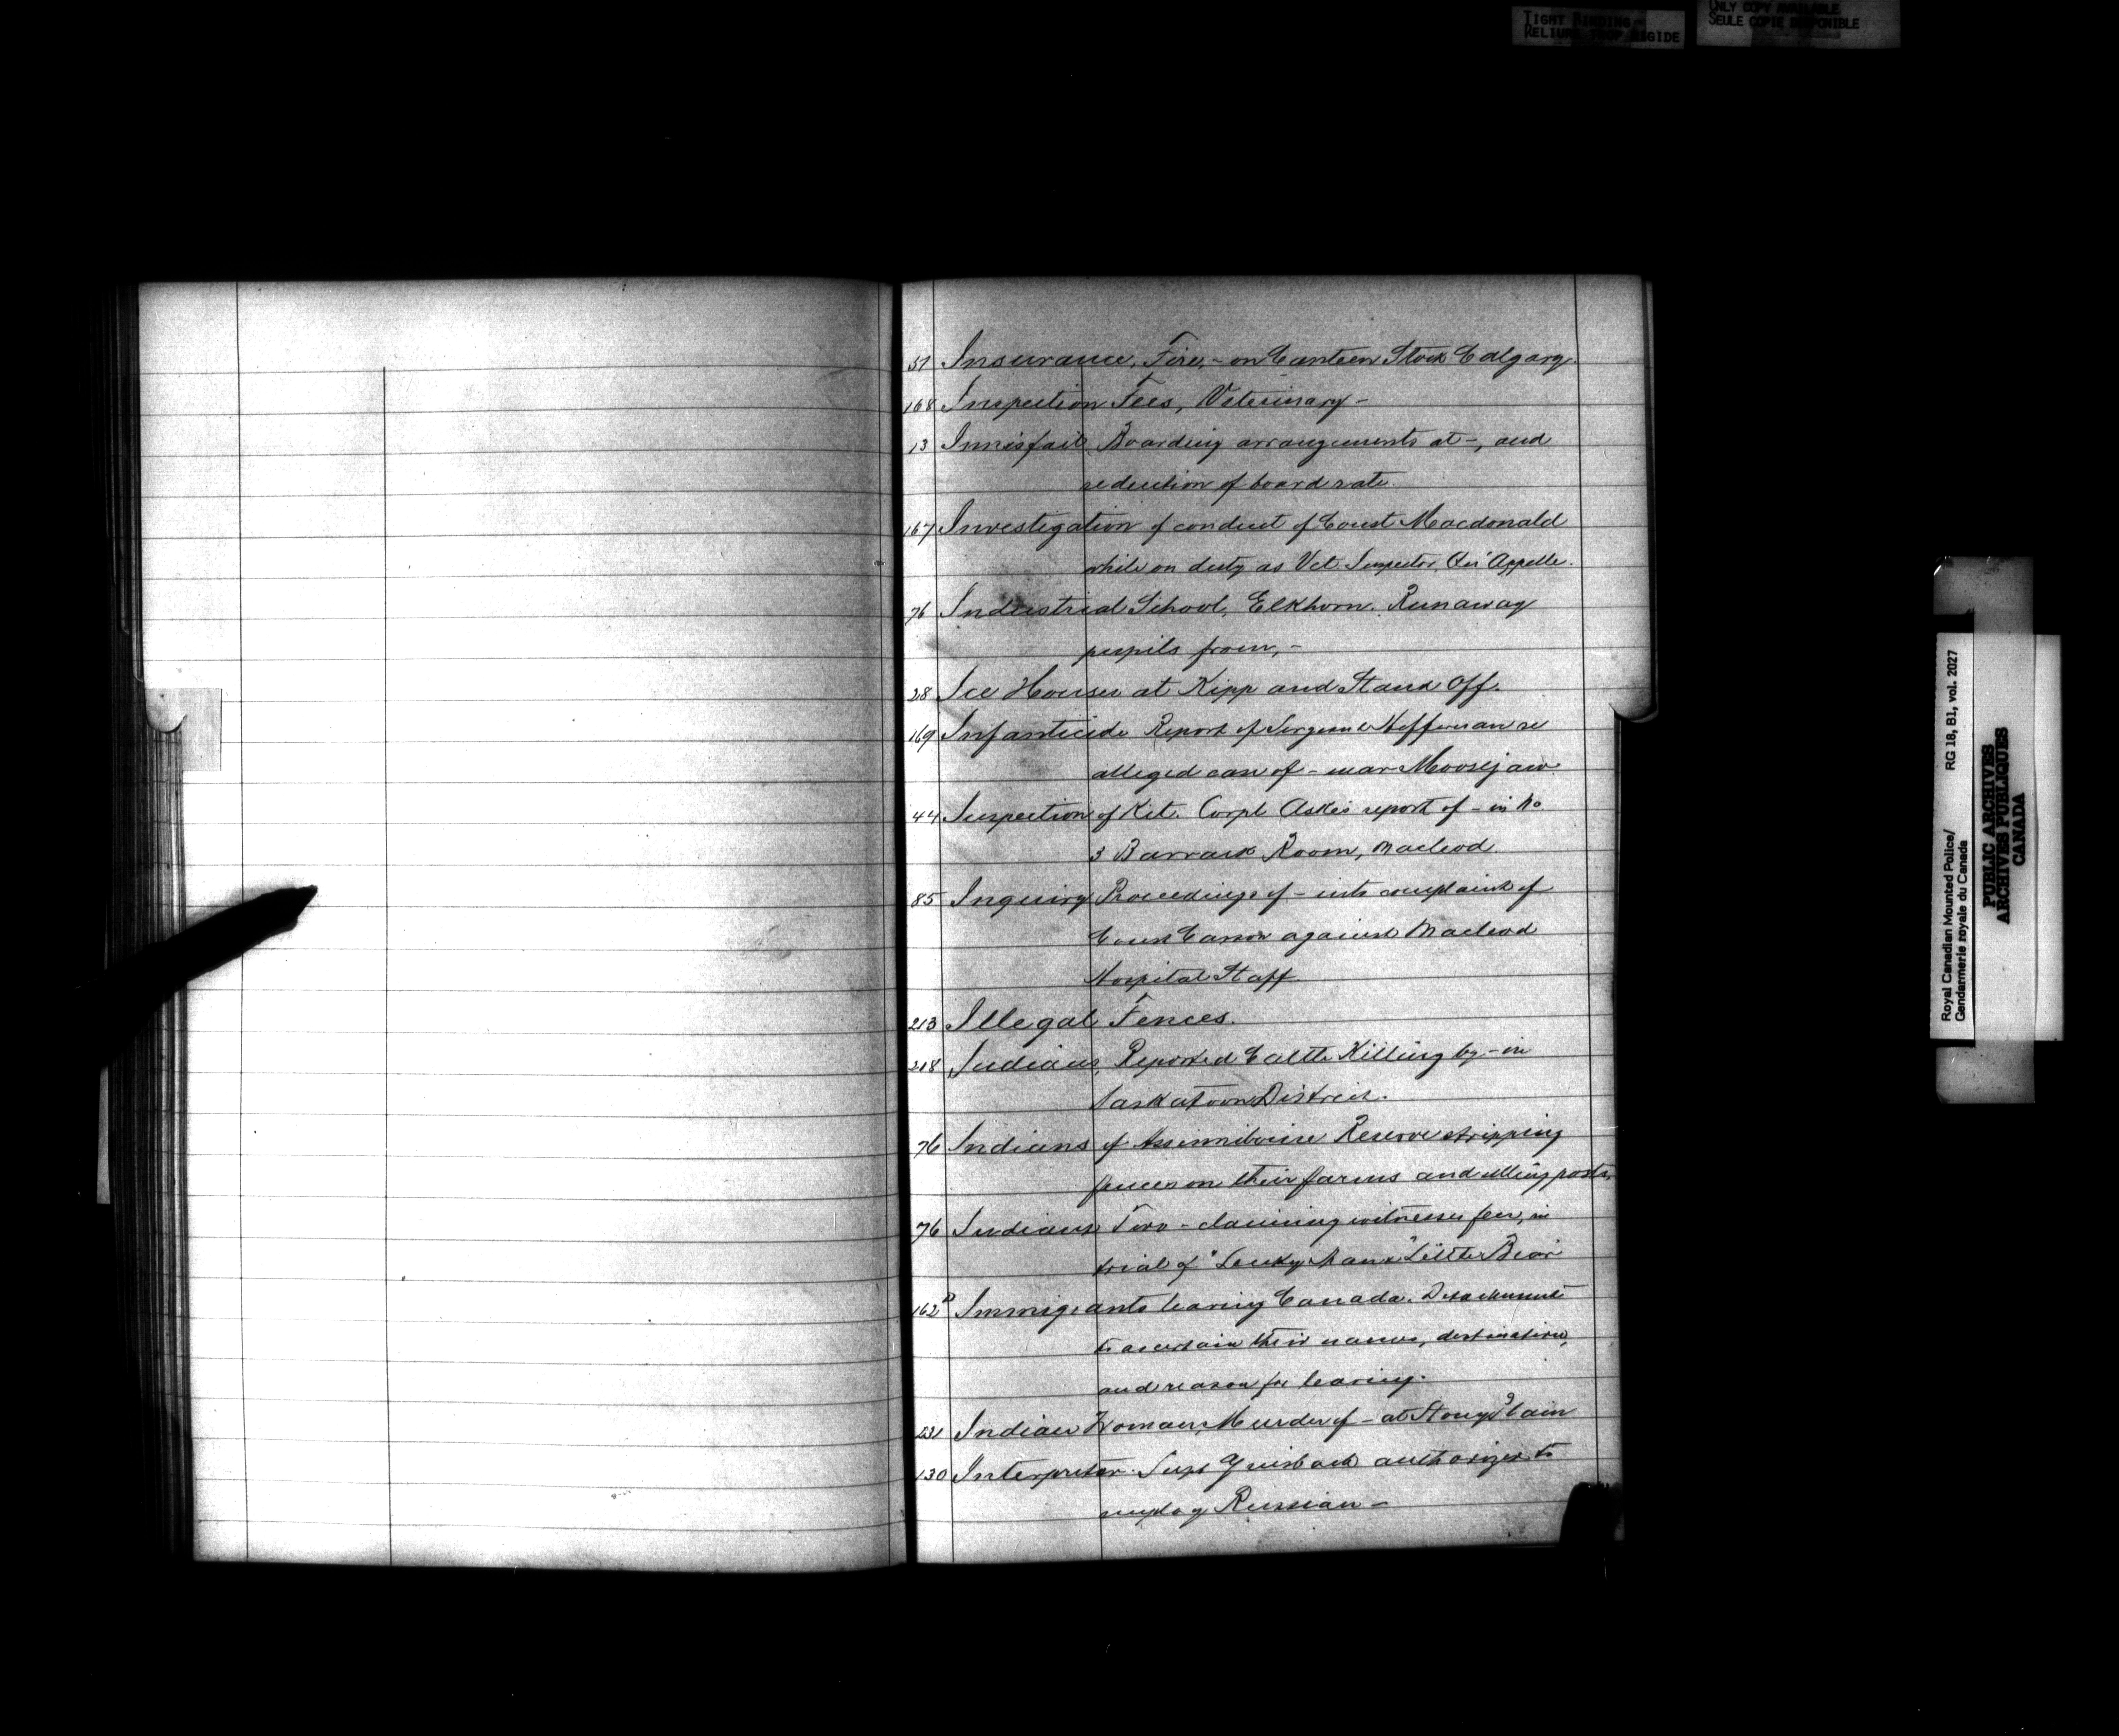 TIGHT BINDING -
RELIURE TROP RIGIDE
ONLY COPY AVAILABLE
SEULE COPIE DISPONIBLE
57 Insurance, Fire, - on Canteen Stock Calgary.
168 Inspection Fees, Veterinary -
13 Innisfail Boarding arrangements at -, and
reduction of board rate
167 Investigation of conduct of Const Macdonald
while on duty as Vet Inspector, Qu'Appelle.
76 Industrial School, Elkhorn. Runaway
pupils from, -
28 Ice Houses at Kipp and Stand Off.
169 Infanticide Report of Sergeant Heffernan re
alleged case of - near Moosejaw
44 Inspection of Kit. Corpl Aske's report of - in No
3 Barrack Room, Macleod
85 Inquiry Proceedings of - into complaint of
Const against Macleod
Hospital Staff
213 Illegal Fences.
218 Indians, Reported Cattle Killing by - in
Saskatoon District.
76 Indians of Assiniboine Reserve stripping
fences on their farms and selling posts,
76 Indians Two - claiming witnesses fees, in
trial of "Lucky Man & Little Bear"
162 Immigrants leaving Canada. Detachments
to ascertain their names, destination,
and reason for leaving.
231 Indian Woman, Murder of - at Stony Plain
130 Interpreter. Supt Griesbach authorized to
employ Russian -
Royal Canadian Mounted Police/
Gendarmerie royale du Canada
RG 18, B1, vol. 2027
PUBLIC ARCHIVES
ARCHIVES PUBLIQUES
CANADA